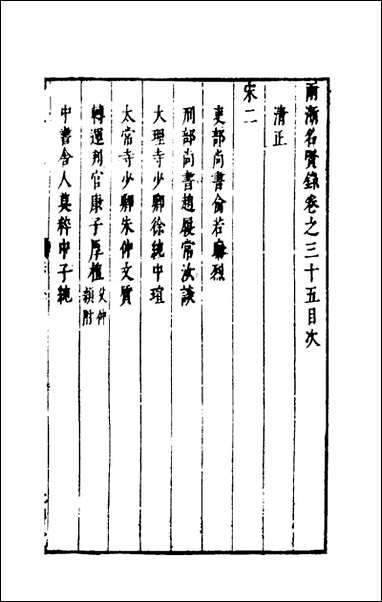 兩浙名賢錄卷之三十五目次
清正
宋二
吏部尚書俞若烈
刑部尚書趙履常汝談
大理寺少卿徐純中瑄
太常寺少卿朱仲文質
轉運判官康子厚植父仲穎附
中書舍人莫粹中子純